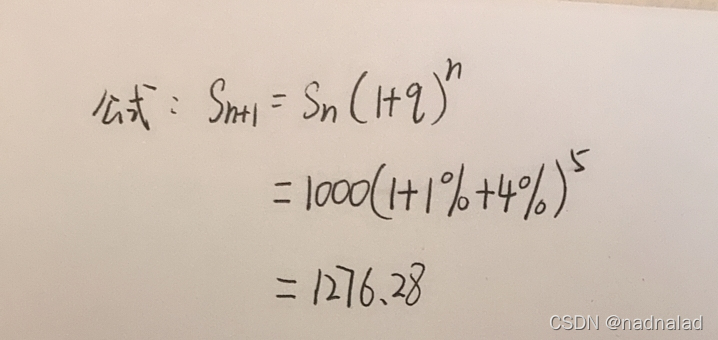 公式: Sn+1 = Sn(1+q)^n
=1000(1+1%+4%)^5
=1276.28
CSDN @nadnalad